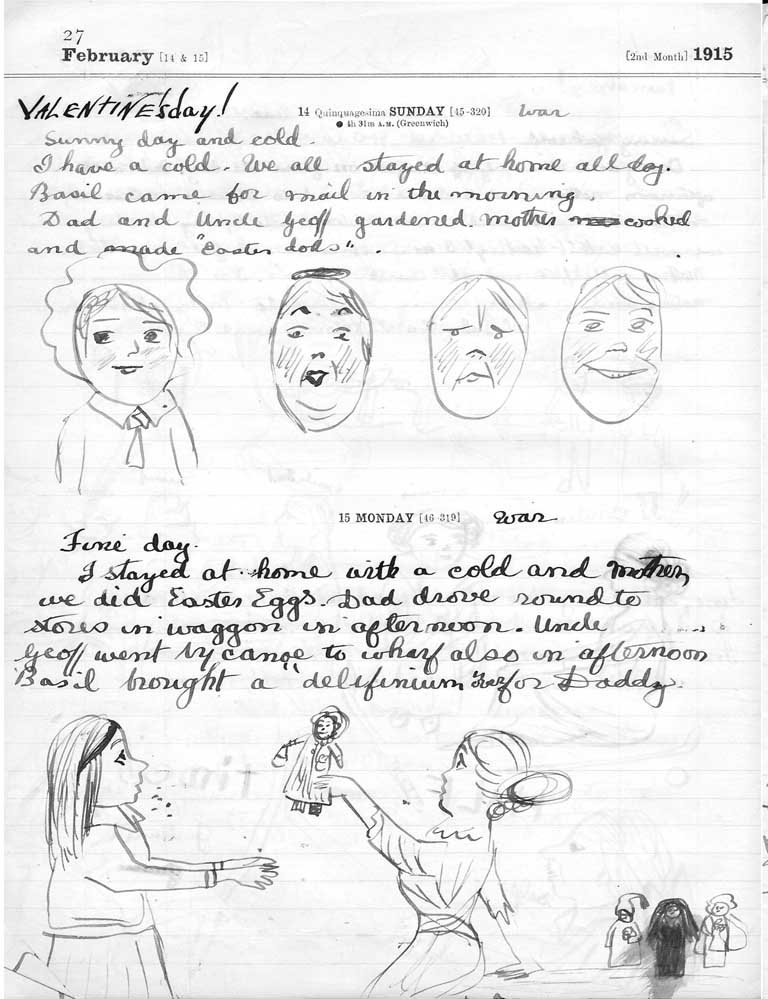 27
February [14 & 15] [2nd Month] 1915
VALENTINEsday!
14 Quinquagesima SUNDAY [45-320] war
● 4h 31m A.M. (Greenwich)
Sunny day and cold.
I have a cold. We all stayed at home all day.
Basil came for mail in the morning.
Dad and Uncle Geoff gardened. Mother cooked
and made "Easter dolls".
15 MONDAY [46-319] war
Fine day.
I stayed at home with a cold and mother,
we did Easter Eggs. Dad drove round to
stores in waggon in afternoon. Uncle
Geoff went by canoe to wharf also in afternoon
Basil brought a "delifinium" for Daddy.